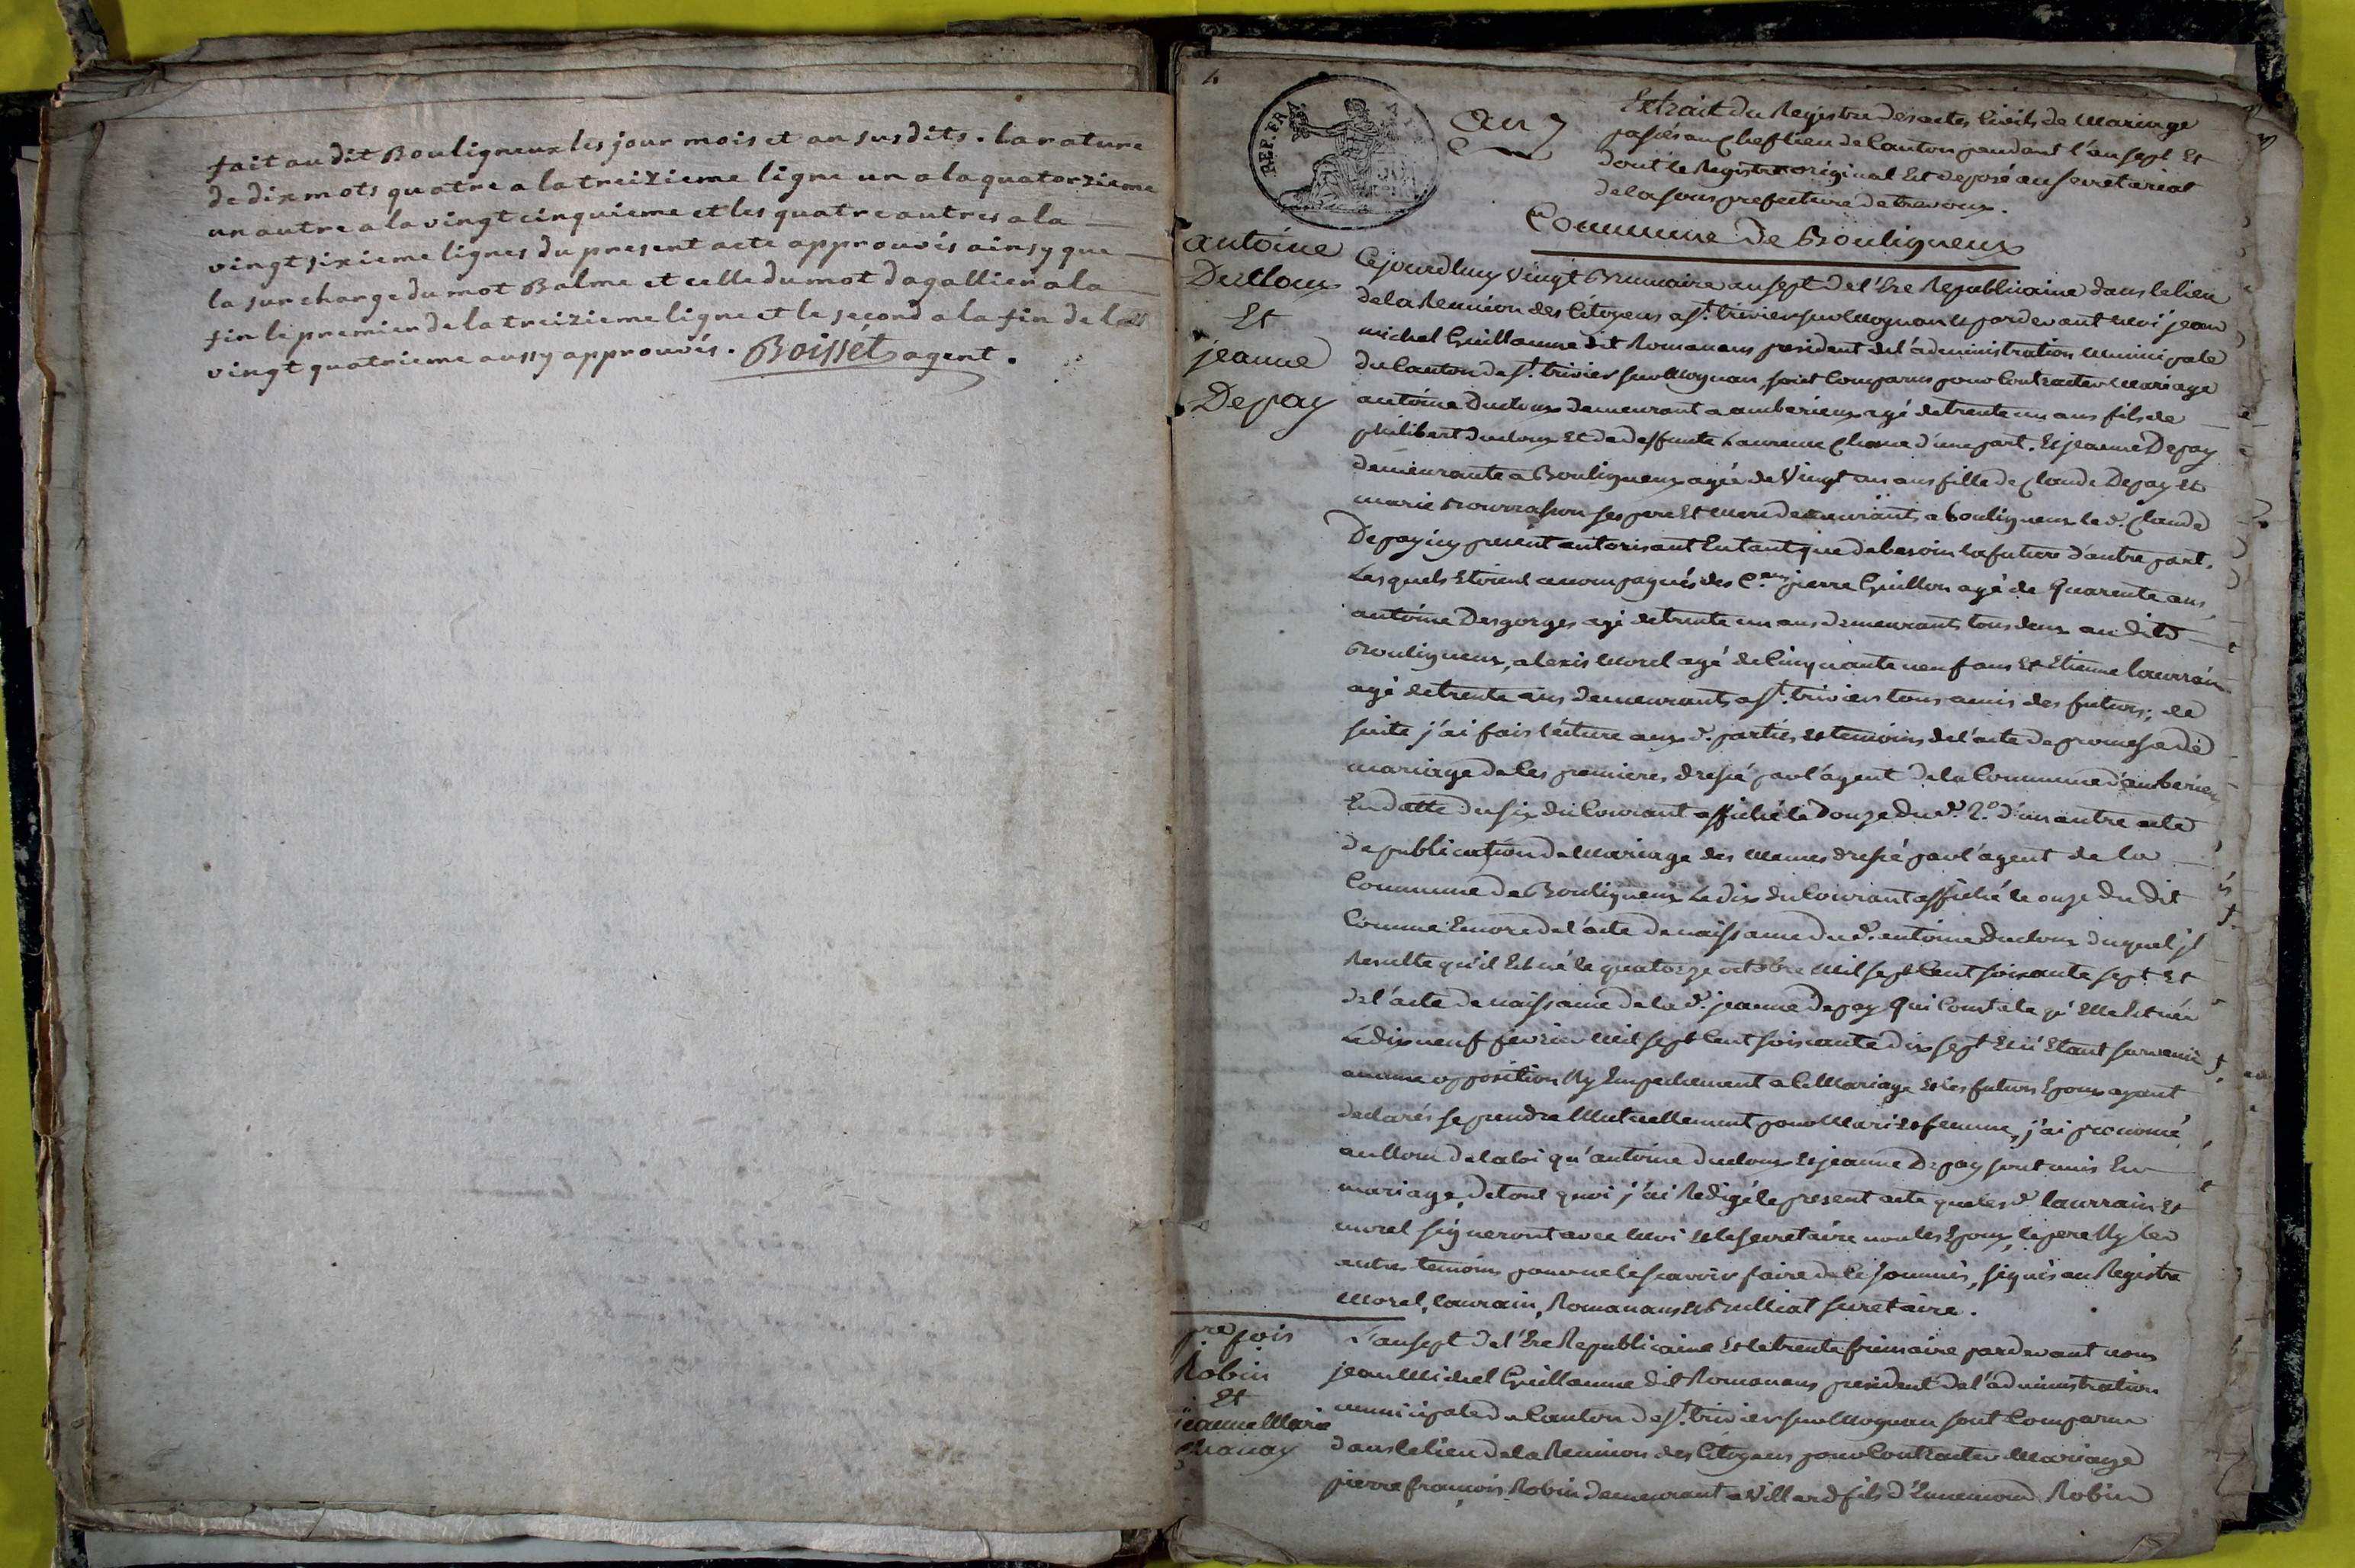 fait au dit Bouligneux les jour mois et an susdits. la rature
de dix mots quatre a la treizieme ligne un a la quatorzieme
un autre a la vingt cinquieme et les quatre autres a la
vingt sixieme lignes du present acte approuvés ainsy que
la surcharge du mot Balme et celle du mot dagallier a la
fin le premier de la treizieme ligne et le second a la fin de la
vingt quatrieme aussy approuvés. Boisset agent.
REP. FRA.
an 7
Extrait du Registre des actes Civils de Mariage
passés au Chef lieu de Canton pendant l'an sept Et
dont le Registre original Est deposé au secretariat
de la sous prefecture de trevoux.
Commune de Bouligneux
antoine
Ducloux
Et
jeanne
Depay
Cejourdhuy vingt Brumaire an sept de l'Ere Republicaine dans le lieu
de la Reunion des Citoyens a St. trivier sur Moignan le pardevant moi jean
michel Guillaume dit Romanans president de l'administration municipale
du Canton de St. trivier sur Moignan, sont Comparus pour Contracter Mariage
antoine Ducloux demeurant a amberieux agé de trente un ans fils de
philibert Ducloux Et de deffunte Laurence d'une part. Et jeanne Depay
demeurante a Bouligneux agée de Vingt un ans fille de Claude Depay et
marie ses pere Et mere demeurants a bouligneux le d. Claude
Depay icy present autorisant En tant que de besoin la future d'autre part.
Lesquels Etoient accompagnés des C.ens pierre Guillon agé de Quarente ans,
antoine Desgorges agé de trente un ans demeurants tous deux au dit
Bouligneux, alexis Morel agé de Cinquante neuf ans Et Etienne laurrain
agé de trente ans demeurants a St. trivier tous amis des futurs; de
suite j'ai fais lecture aux d. parties et temoins de l'acte de promesse de
mariage de Ces premieres, dressé par l'agent de la Commune d'amberieux
En datte du six du Courant affiché le douze du d. 2.° d'un autre acte
de publication de Mariage des memes dressé par l'agent de la
Commune de Bouligneux Le dix du Courant affiché le onze du dit
Comme Encore de l'acte de naissance du d. antoine Ducloux duquel jl
Resulte qu'il Est né le quatorze octobre Mil sept Cent soixante sept Et
de l'acte de naissance de la d. jeanne Depay Qui Constate qu'Elle Est née
Le dix neuf fevrier Mil sept Cent soixante dix sept Et n'Etant survenu
aucune opposition Ny Empechement a Ce Mariage Et les futurs Epoux ayant
declarés se prendre Mutuellement pour Mari Et femme, j'ai prononcé
au Nom de la loi qu'antoine ducloux Et jeanne Depay sont unis En
mariage, de tout quoi j'ai Redigé le present acte que les d. laurrain Et
morel signeront avec Moi Et le secretaire non les Epoux, le pere Ny les
autres temoins pour ne le scavoir faire de Ce sommés, signés au Registre
Morel, laurain, Romanans Et secretaire.
pre. fois
Robin
Et
jeanne Marie
L'an sept de l'Ere Republicaine Et le trente frimaire pardevant nous
jean Michel Guillaume dit Romanans president de l'administration
municipale du Canton de St. trivier sur Moignan sont Comparus
dans le lieu de la Reunion des Citoyens pour Contracter Mariage
pierre françois Robin demeurant a Villard fils d'Ennemond Robin